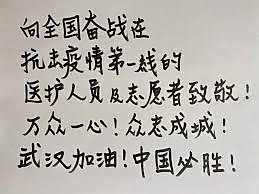 向全国奋战在
抗击疫情第一线的
医护人员及志愿者致敬！
万众一心！众志成城！
武汉加油！中国必胜！